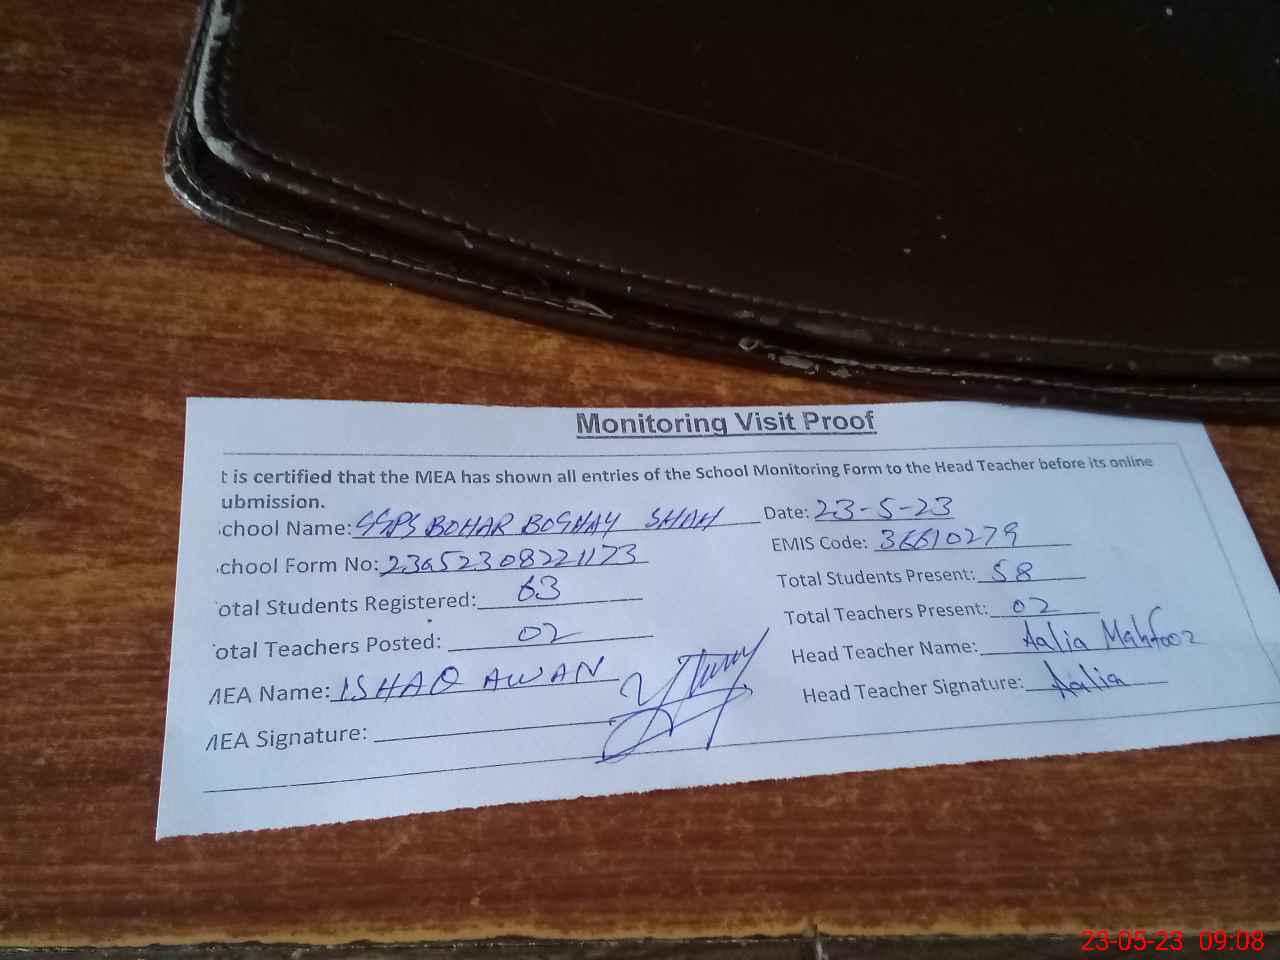 Monitoring Visit Proof
t is certified that the MEA has shown all entries of the School Monitoring Form to the Head Teacher before its online
ubmission.
chool Name: GGPS BOHAR BOGHAY SHAH Date: 23-5-23
chool Form No: 23052308221173 EMIS Code: 36610279
otal Students Registered: 63 Total Students Present: 58
otal Teachers Posted: 02 Total Teachers Present: 02
MEA Name: ISHAQ AWAN Head Teacher Name: Aalia Mahfooz
MEA Signature: Head Teacher Signature: Aalia
23-05-23 09:08